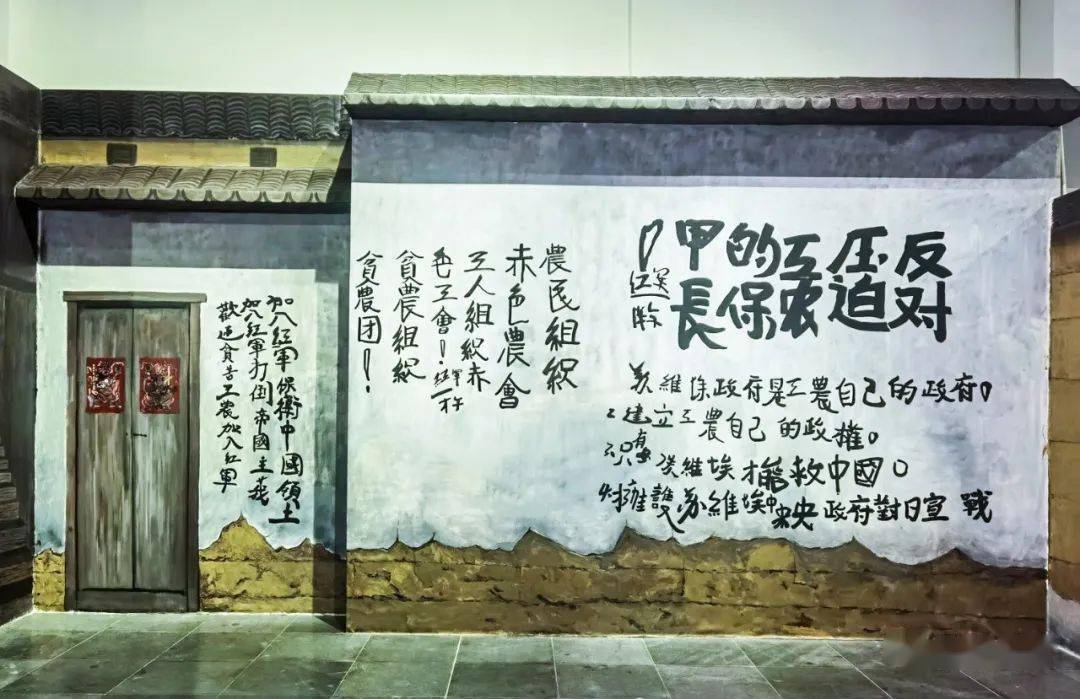 反对
压迫
工农
的保
甲長
！
蘇維埃政府是工農自己的政府！
建立工農自己的政權。
只有蘇維埃才能救中國。
擁護苏維埃中央政府對日宣戰
農民組织
赤色農會
工人組织赤
色工會！
貧農組织
貧農团！
加入红軍保衛中國領土
加入红軍打倒帝國主義
歡迎貧苦工農加入红軍